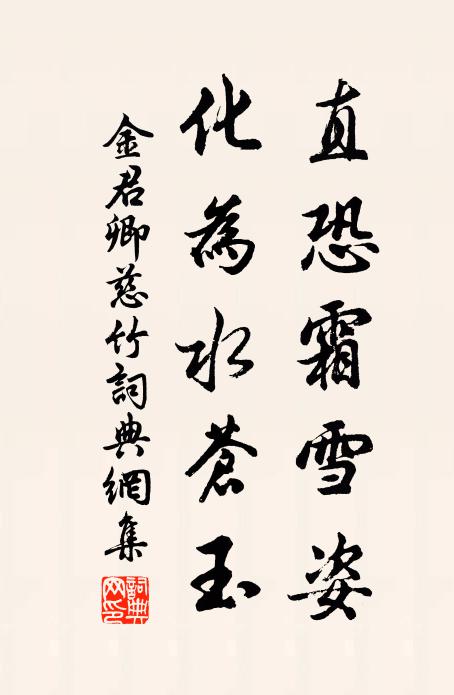 直恐霜雪姿
化為水蒼玉
金君卿慈竹詞典網集
詞典網印